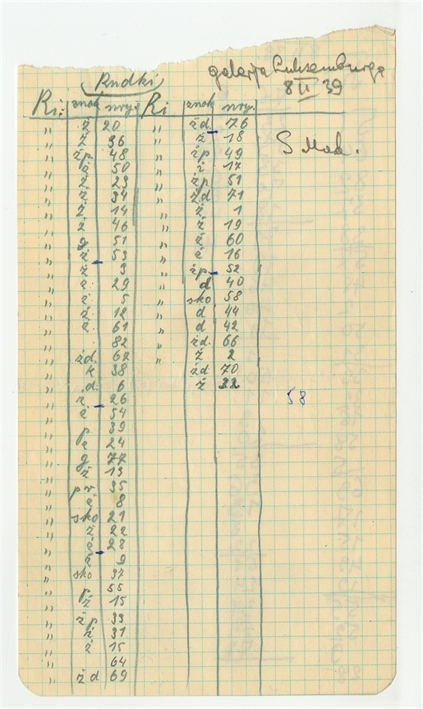 Rndki
galerja Luksemburga
8 II 39
S Mod.
Ri: znak nry. Ri znak nry.
" ż 20 " żd. 76
" ż 36 " ż 18
" żp. 48 " żp 49
" ż 50 " ż 17
" ż 29 " żp. 51
" ż 34 " żd 71
" ż 14 " ż 1
" ż 46 " ż 19
" g 51 " ą 60
" ż 53 " ą 16
" ż 3 " żp. 52
" ą 29 " d 40
" ą 5 " sko 58
" ż 12 " d 44
" ą 61 " d 42
" 82 " żd. 66
" żd. 62 " ż 2
" k 38 żd 70
" d. 6 ż 32
" ż. 26
" ą 54
" p. 39
" ą 24
" g 77
" ż 13
" pr. 35
" ą 8
" sko 21
" ż 22
" ą 28
" ą 9
" sko 37
" p. 55
" ż 15
" żp 33
" ż 31
" ż 15
" 64
" żd 69
58